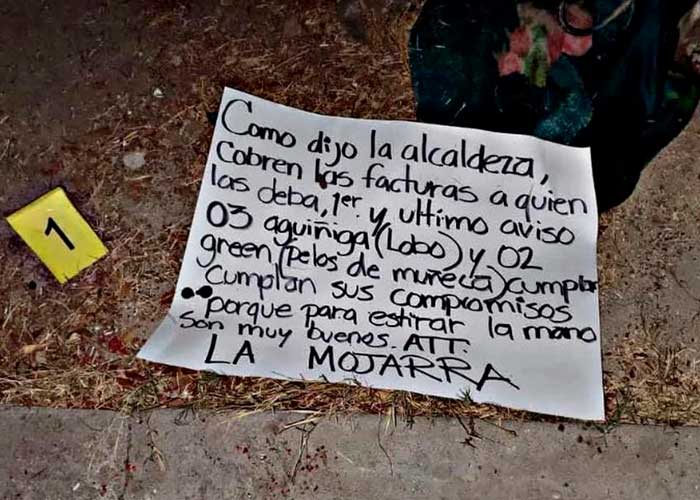 Como dijo la alcaldeza,
Cobren las facturas a quien
las deba, 1er y ultimo aviso
03 aguiñiga (Lobo) y 02
green (pelos de muñeca) cumplan
cumplan sus compromisos
porque para estirar la mano
son muy buenos. ATT.
LA MOJARRA
1